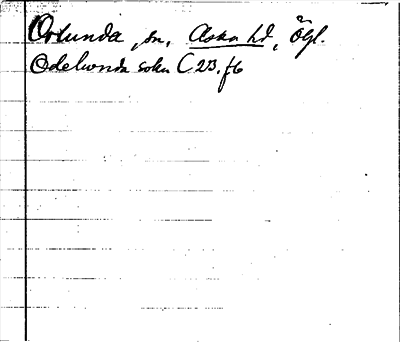 Orlunda, sn, Aska hd, Ögl.
Odelunda sokn C 23. f6